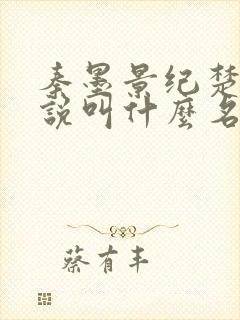 秦墨景纪楚
說叫什麼名
蔡有丰